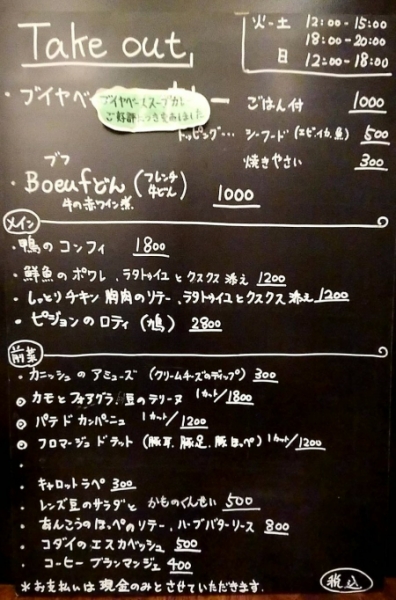 Take out
火-土 12:00-15:00
18:00-20:00
日 12:00-18:00
・ブイヤベ ー ごはん付 1000
ブイヤベーススープカレー
ご好評につき
トッピング… シーフード(エビ、イカ、魚) 500
焼きやさい 300
ブフ
・Boeufどん (フレンチ牛どん) 1000
牛の赤ワイン煮
メイン
・鴨のコンフィ 1800
・鮮魚のポワレ、ラタトゥイユとクスクス添え 1200
・しっとりチキン胸肉のソテー、ラタトゥイユとクスクス添え 1200
・ピジョンのロティ(鳩) 2800
前菜
・カニッシュのアミューズ (クリームチーズのディップ) 300
・カモとフォアグラ、豆のテリーヌ 1カット/1800
・パテドカンパーニュ 1カット/1200
・フロマージュドテット(豚耳、豚足、豚ほっぺ) 1カット/1200
・
・キャロットラペ 300
・レンズ豆のサラダとかものくんせい 500
・あんこうのほっぺのソテー、ハーブバターソース 800
・コダイのエスカベッシュ 500
・コーヒーブランマンジェ 400
*お支払いは現金のみとさせていただきます。
税込